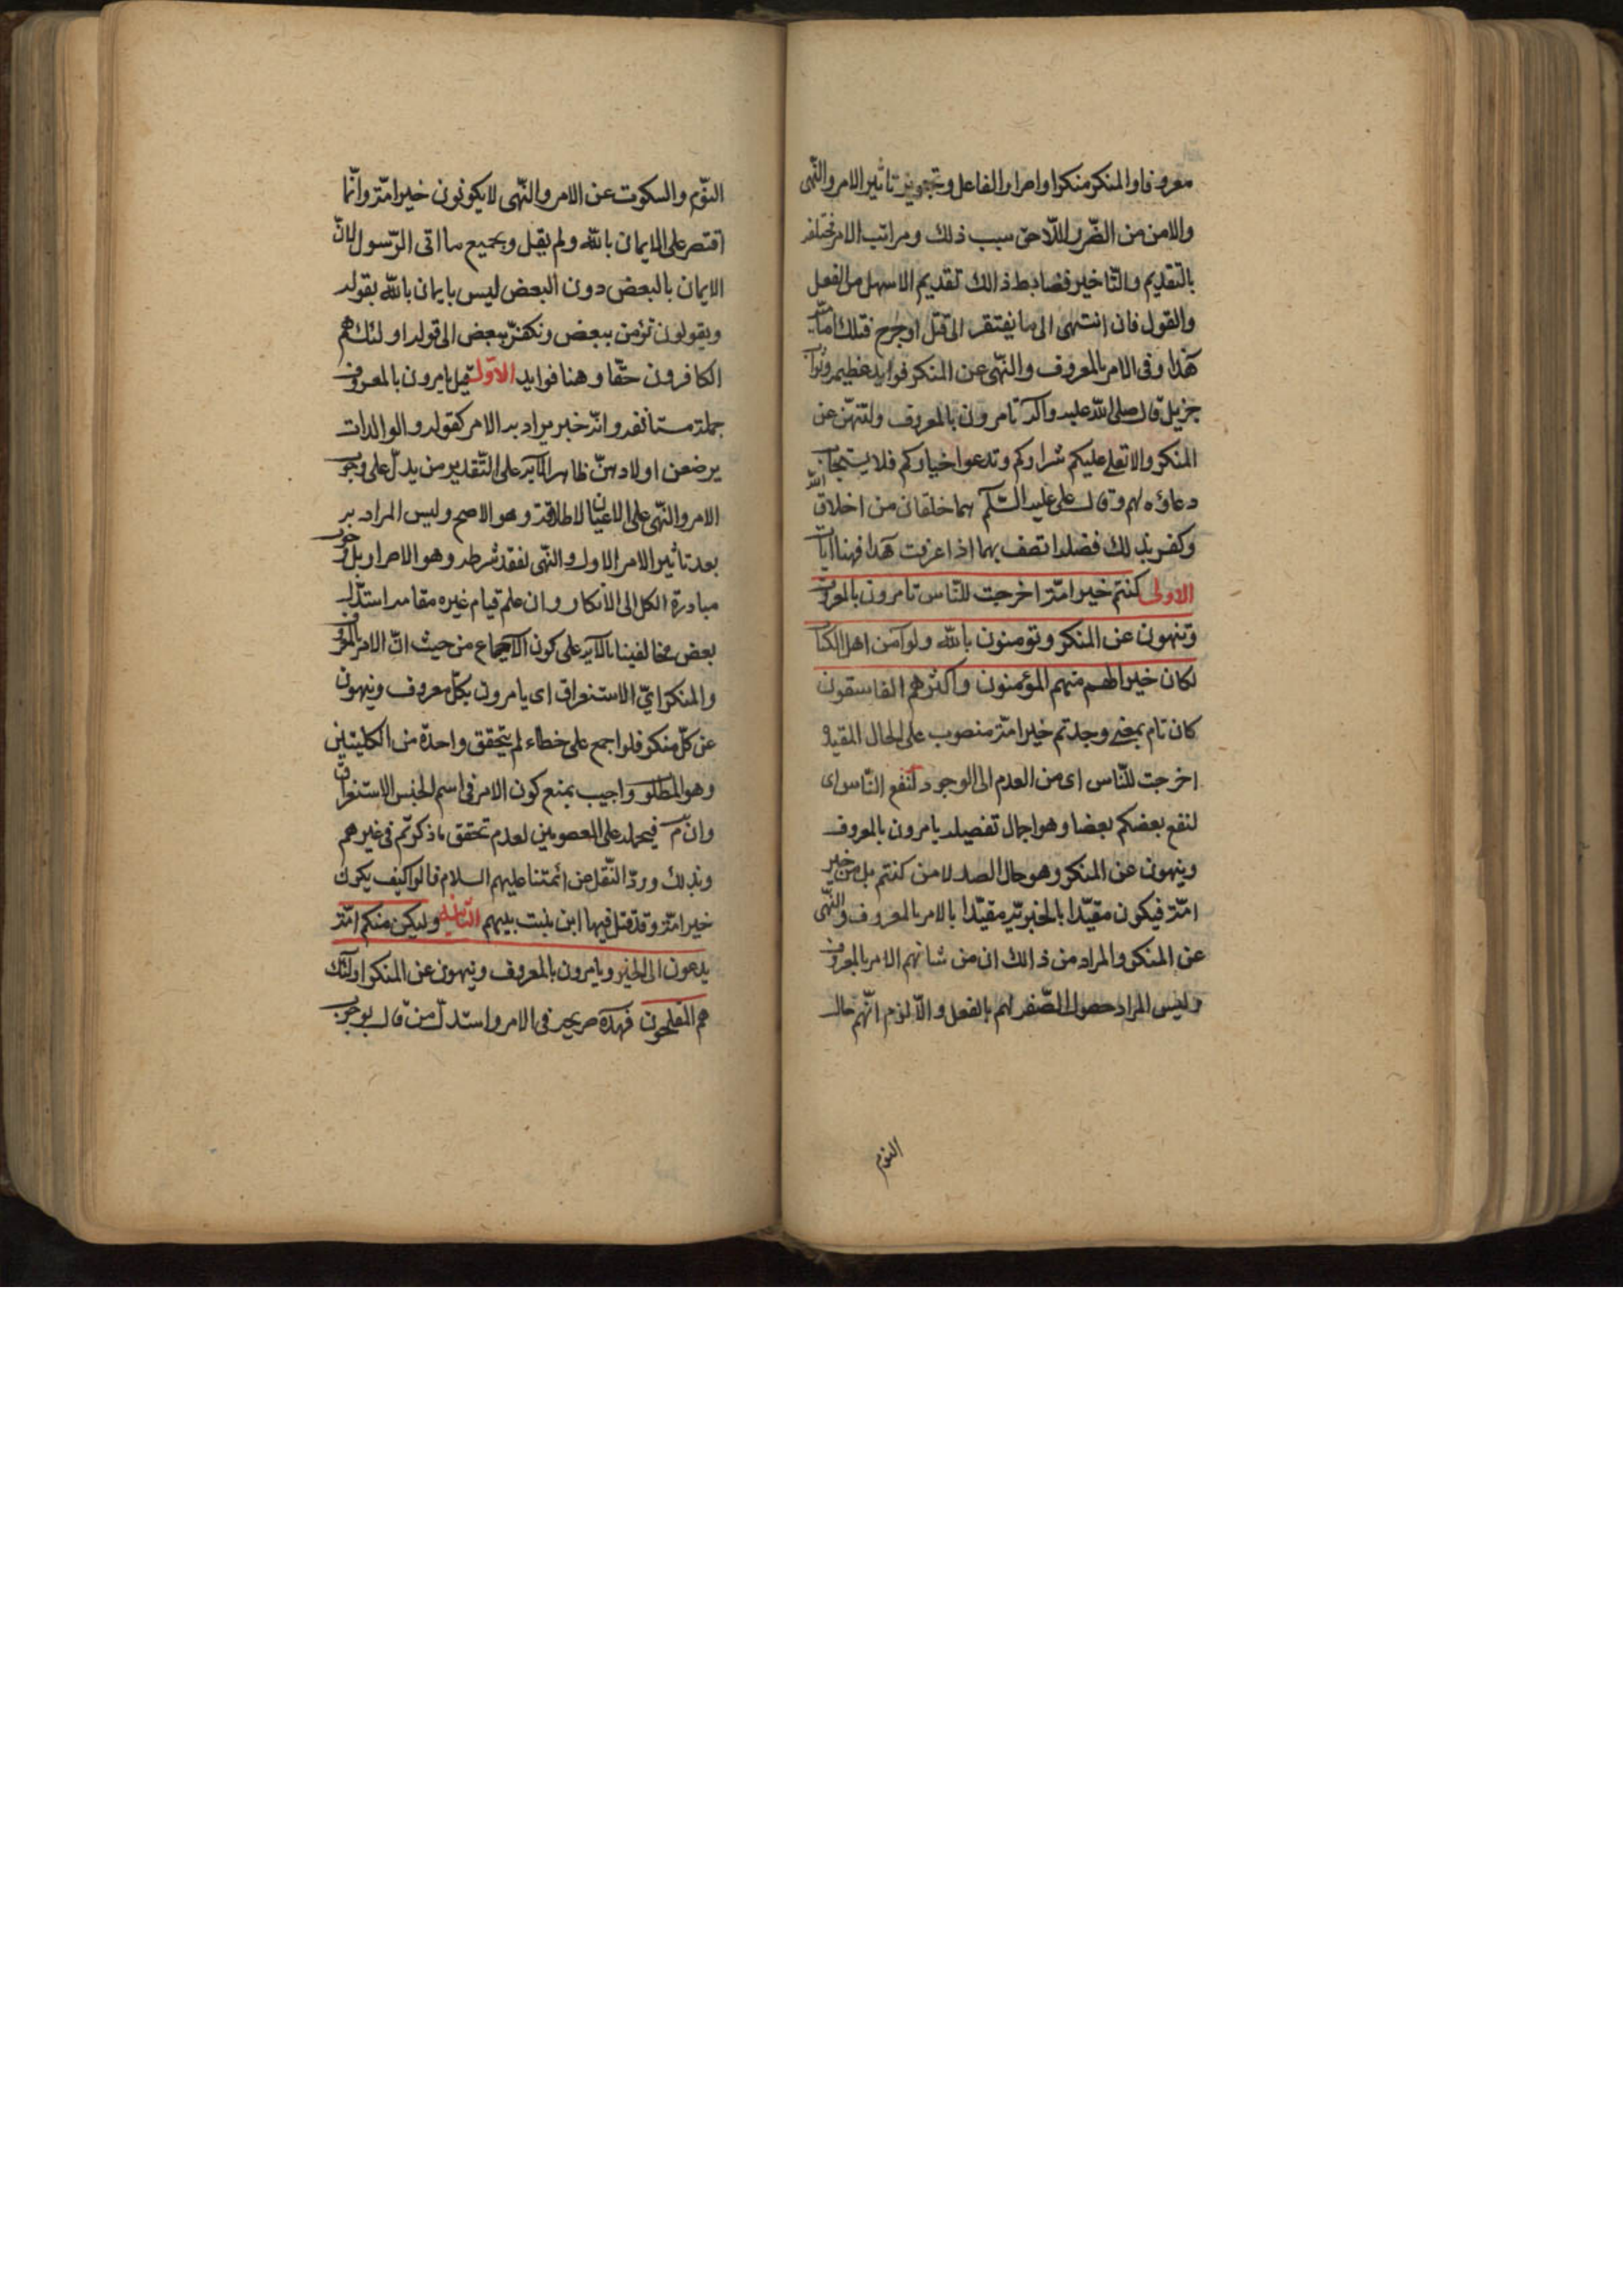 معروفا والمنكر منكرا واصرار الفاعل وتجويز تاثير الامر والنّهى
والامن من الضّرر اللّاحق بسبب ذلك ومراتب الامر تختلف
بالتقديم والتّاخير فضابط ذالك تقديم الاسهل من الفعل
والقول فان انتهى الى ما يفتقر الى قتل او جرح فتلك
هذا وفى الامر بالمعروف والنّهى عن المنكر فوايد عظيمه وثواب
جزيل قال صلى الله عليه وآله تامرون بالمعروف ولتنهنّ عن
المنكر والا تعلى عليكم شراركم وتدعوا خياركم فلا يستجاب
دعاؤه لهم وقال على عليه السّلام هما خلقان من اخلاق الله
وكفى بذلك فضلا اتصف بهما اذا عرفت هذا فهنا ايات
الاولى كنتم خير امّة اخرجت للنّاس تامرون بالمعروف
وتنهون عن المنكر وتؤمنون بالله ولو آمن اهل الكتاب
لكان خيرا لهم منهم المؤمنون واكثرهم الفاسقون
كان تام بمعنى وجدتم خير امّة منصوب على الحال المقيده
اخرجت للنّاس اى من العدم الى الوجود لنفع النّاس اى
لنفع بعضكم بعضا وهو اجمال تفصيله يامرون بالمعروف
وينهون عن المنكر وهو حال الصد لا من كنتم بل من خير
امّة فيكون مقيّدا بالخيريّه مقيّدا بالامر بالمعروف والنّهى
عن المنكر والمراد من ذالك ان من شانهم الامر بالمعروف
وليس المراد حصول الصّفه لهم بالفعل والّا لزم انّهم حال
النوم
النّوم والسكوت عن الامر والنّهى لا يكونون خير امّة وانّما
اقتصر على الايمان بالله ولم يقل وبجميع ما اتى الرّسول لانّ
الايمان بالبعض دون البعض ليس بايمان بالله بقوله
ويقولون نؤمن ببعض ونكفر ببعض الى قوله اولئك هم
الكافرون حقّا وهنا فوايد الاوّل قيل يامرون بالمعروف
جملة مستانفه وانّه خبر يراد به الامر كقوله والوالدات
يرضعن اولادهنّ ظاهر الآيه على التّقديرين يدلّ على وجوب
الامر والنّهى على الاعيان لاطلاقه وهو الاصح وليس المراد به
بعد تاثير الامر الاول والنّهى لفقد شرطه وهو الاصرار بل وجوب
مبادرة الكل الى الانكار وان علم قيام غيره مقامه استدلّ
بعض مخالفينا بالآيه على كون الاجماع من حيث انّ الامر بالمعروف
والمنكر الاستغراق اى يامرون بكلّ معروف وينهون
عن كلّ منكر فلو اجمع على خطاء لم يتحقق واحدة من الكليتين
وهو المطلوب واجيب بمنع كون الامر فى اسم الجنس للاستغراق
وان سلّم فيحمله على المعصومين لعدم تحقق ما ذكرتم فى غيرهم
وبذلك ورد النّقل عن ائمّتنا عليهم السلام قالوا كيف يكون
خير امّة وقد قتل فيها ابن بنت نبيهم الثانيه ولتكن منكم امّة
يدعون الى الخير ويامرون بالمعروف وينهون عن المنكر اولئك
هم المفلحون فهذه صريحه فى الامر واستدلّ من قال بوجوبه